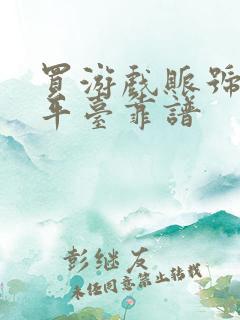 買游戲賬號
平臺靠譜
彭继友
未经同意禁止转载